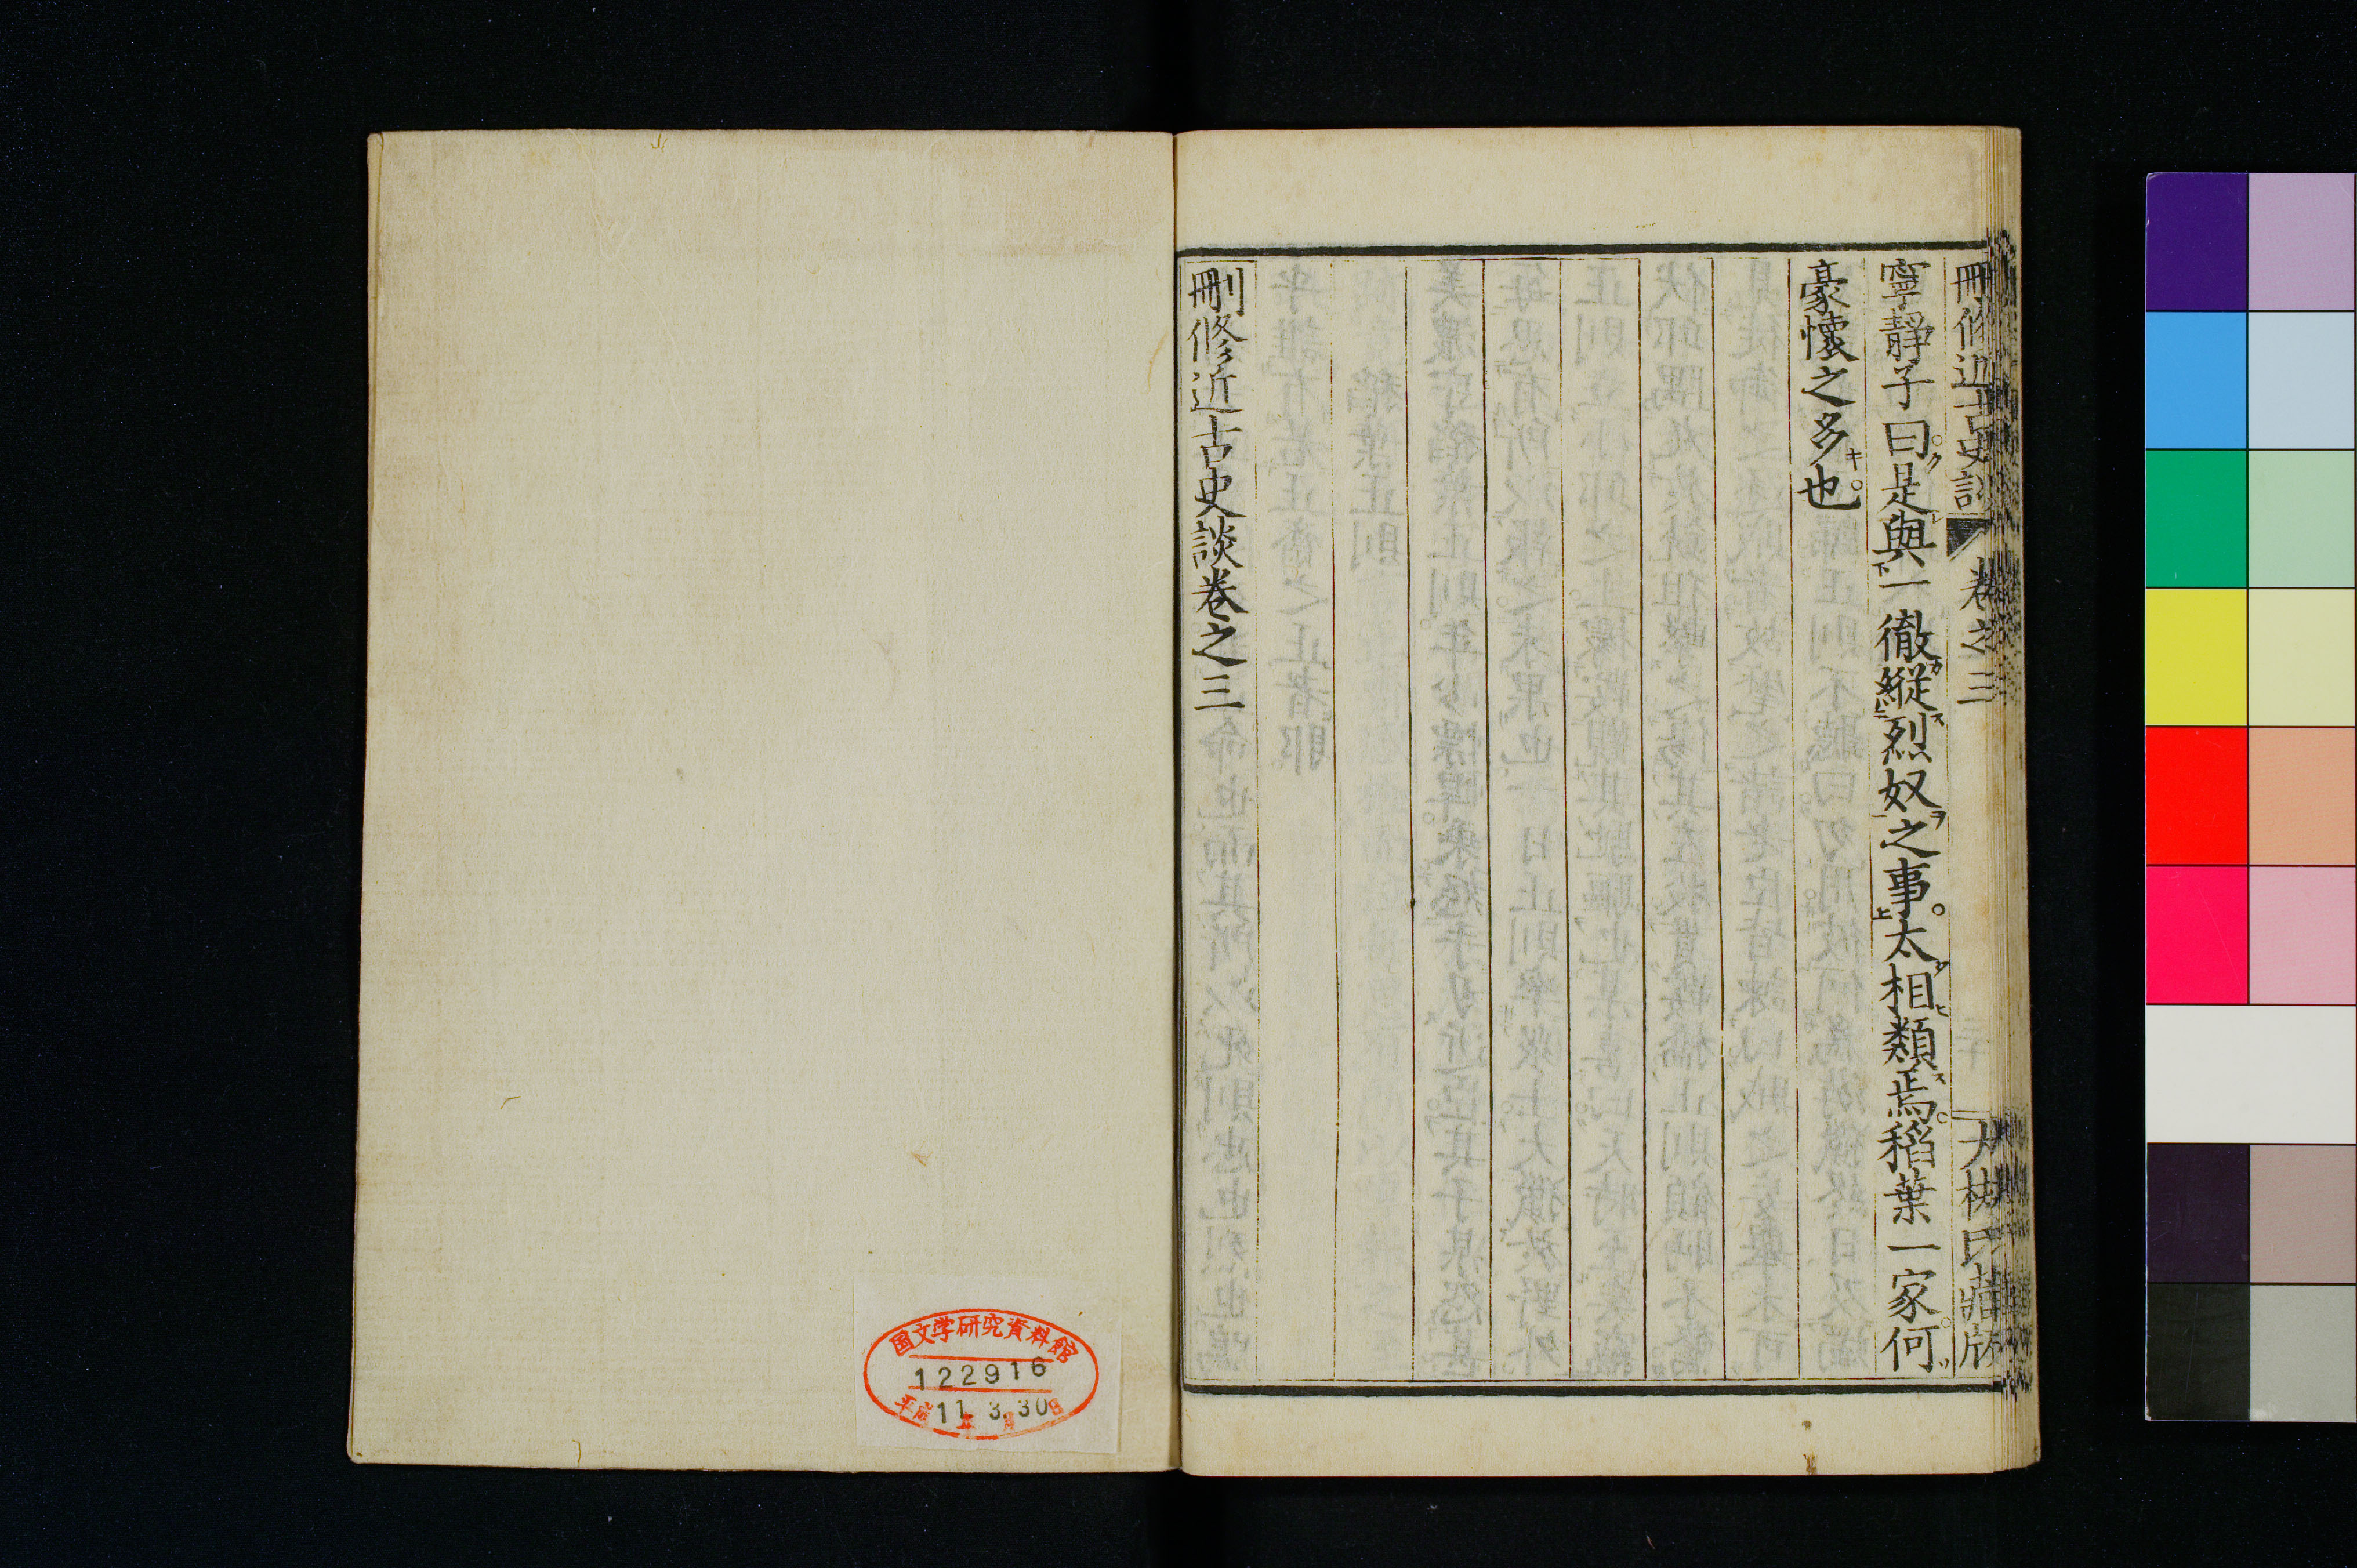 刪修近古史談 卷之三 大槻氏藏版
寧靜子曰是與一徹縱烈奴之事太相類焉稻葉一家何
豪懷之多也
刪修近古史談卷之三
国文学研究資料館
122916
平成11年3月30日